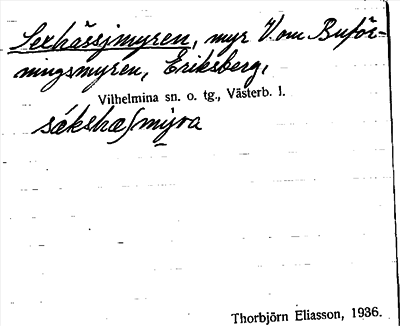 Sexhässjmyren, myr V. om Buför-
ningsmyren, Eriksberg,
Vilhelmina sn. o. tg., Västerb. l.
sákshaʃmỳra
Thorbjörn Eliasson, 1936.